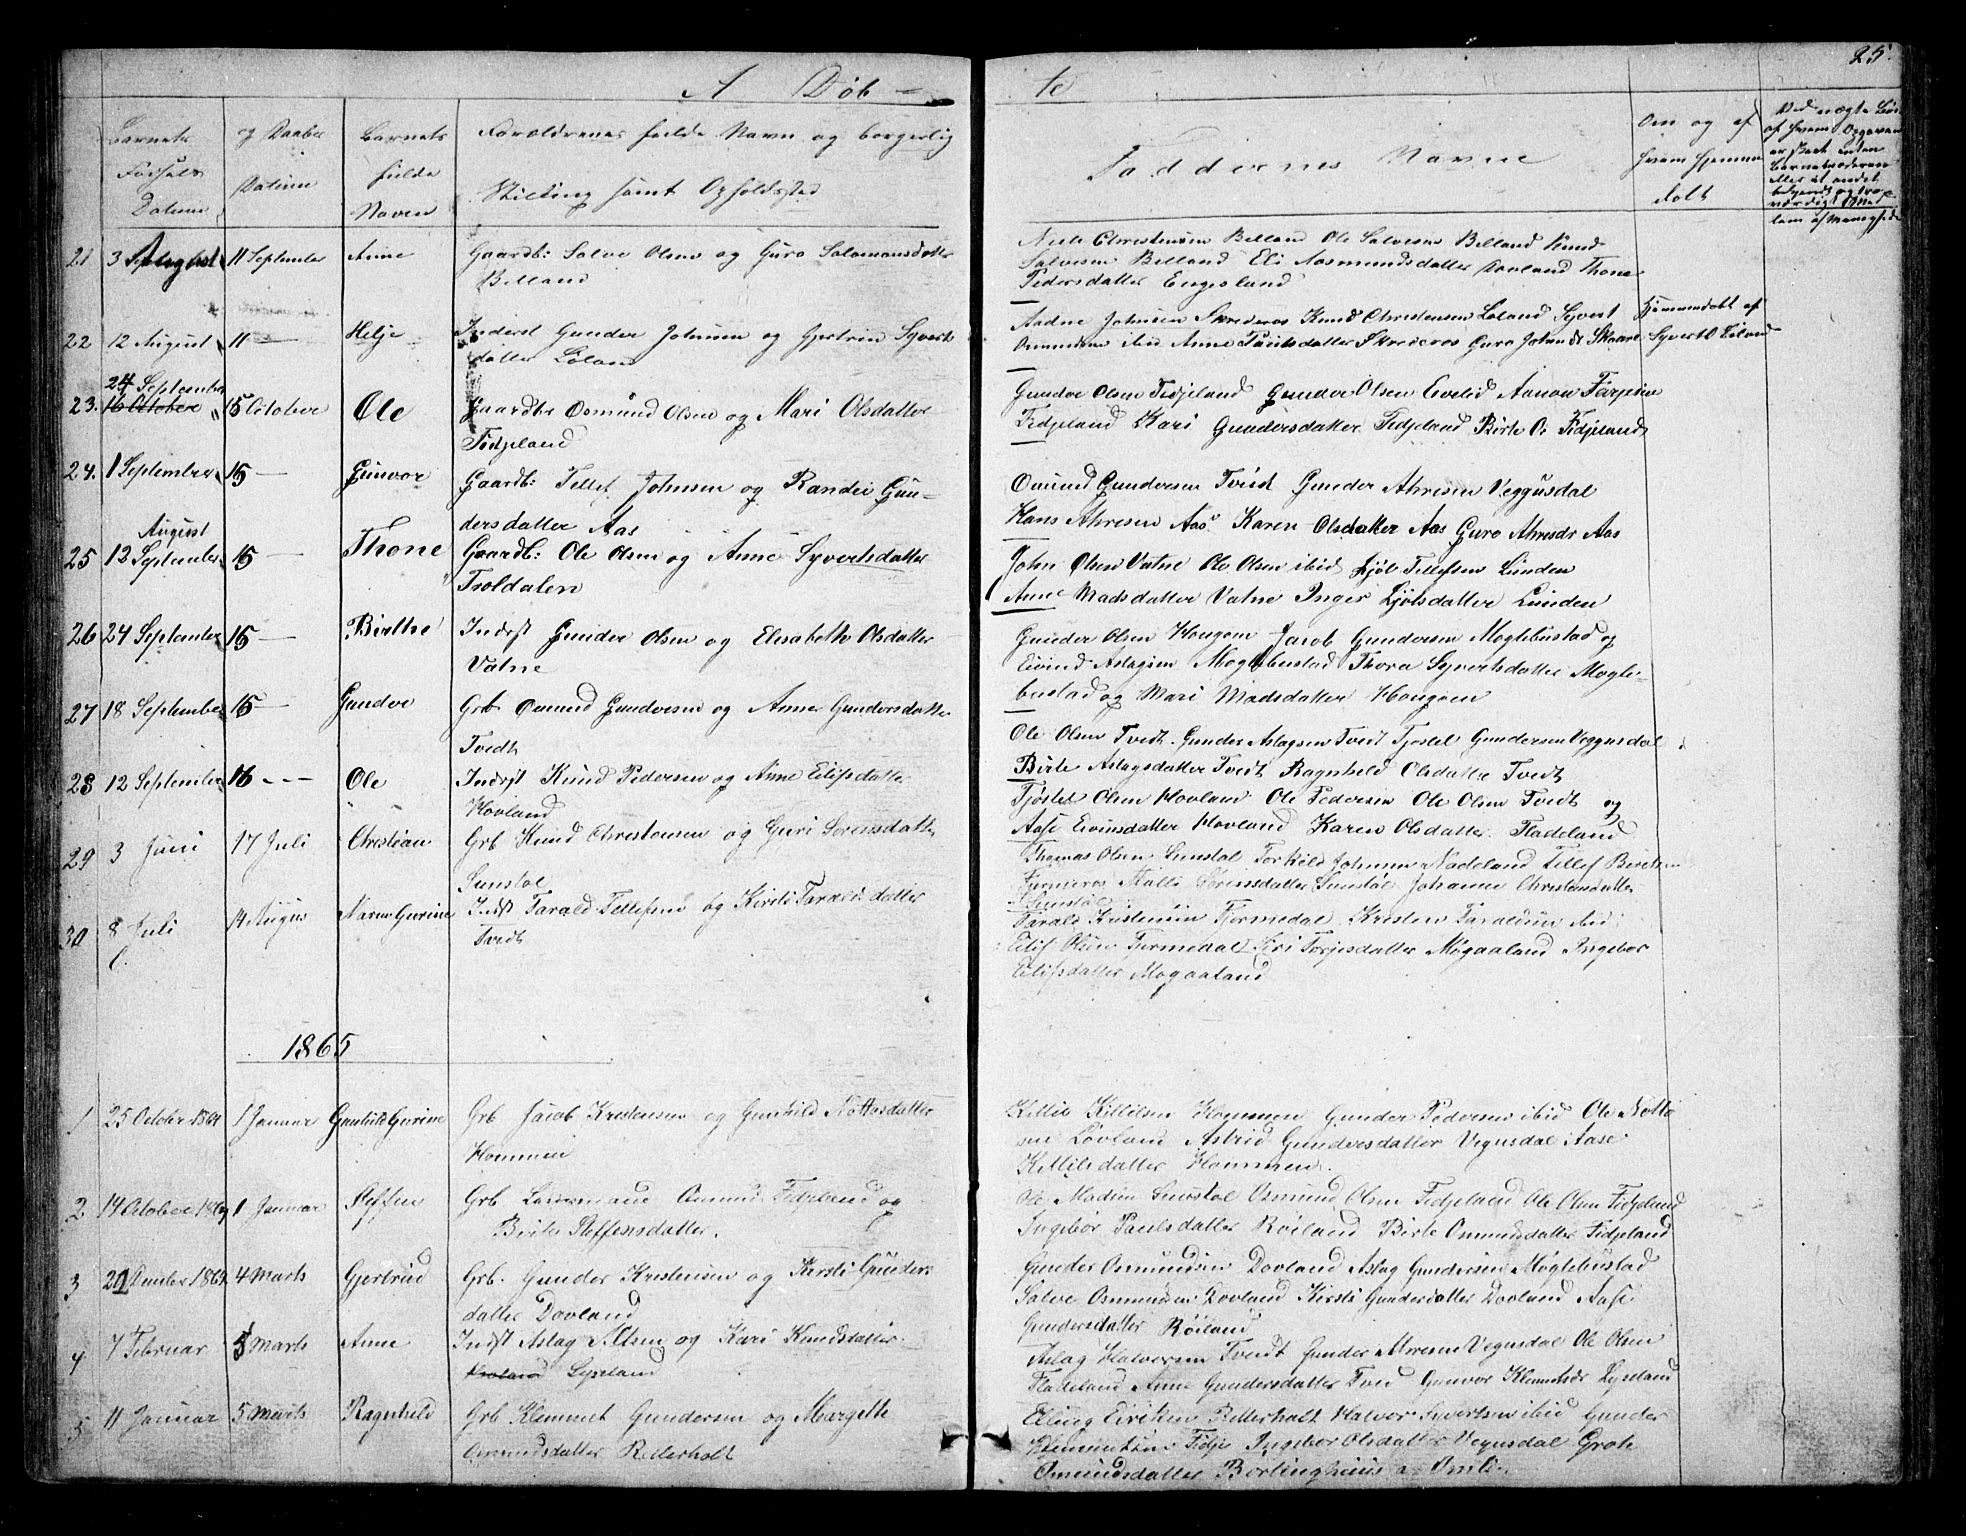 25.
A Døb - te
Barnets Fødsels Datum
og Daabs Datum
Barnets fulde Navn
Forældrenes fulde Navn og borgerlig
Stilling samt Opholdssted
Faddernes Navne
Om og af
hvem hjemme
døbt
21 3 11 September Anne Gaardb: Salve Olsen og Guro Salamonsdatter
Belland
Niels Christensen Belland Ole Salvesen Belland Knud
Salvesen Belland Eli Aasmundsdatter Dovland Thone
Pedersdatter Engesland
22 12 August 11 — Helje Inderst Gunder Johnsen og Gjertrud Syverts
datter Løland
Aadne Johnsen Skreros Knud Christensen Løland Syvert
Osmundsen ibid Anne Paulsdatter Skreros Guro Johnsd Skaare
Hjemmedøbt af
Syvert O Løland
24 September
23. 16 October 15 October Ole Gaardbr Osmund Olsen og Mari Olsdatter
Fidjeland
Gundve Olsen Fidjeland Gunder Olsen Eveled Aanon Tarjesen
Fidjeland Kari Gundersdatter Fidjeland Birte O Fidjeland
24. 1 September 15 — Gunvor Gaardb: Tellef Johnsen og Randei Gun-
dersdatter Aas
Omund Gundersen Tveid Gunder Ahresen Veggusdal
Hans Ahresen Aas Karen Olsdatter Aas Guro Ahresdr Aas
August
25 12 September 15 — Thone Gaardb: Ole Olsen og Anne Syvertsdatter
Troldalen
John Olsen Vatne Ole Olsen ibid Ljøl Tellefsen Lunden
Anne Madsdatter Vatne Inger Ljølsdatter Lunden
26 24 September 15 — Birthe Inderst Gunder Olsen og Elisabeth Olsdatter
Vatne
Gunder Olsen Hougom Jacob Gundersen Moglebustad og
Eivind Aslagsen Moglebustad Thora Syvertsdatter Mogle-
bustad og Mari Madsdatter Hougoen
27 18 September 15 — Gundve Grb Omund Gundvesen og Anne Gundersdatter
Tvedt
Ole Olsen Tvedt Gunder Aslagsen Tvedt Tjøstel Gundersen Veggusdal
Birte Aslagsdatter Tvedt Ragnhild Olsdatter Tvedt
28 12 September 16 - - Ole Inderst Knud Pedersen og Anne Eilifsdatter
Hovland
Tjøstel Olsen Hovland Ole Pedersen Ole Olsen Tvedt og
Aase Eivinsdatter Hovland Karen Olsdatter Fladeland
29 3 Juni 17 Juli Christian Grb Knud Christensen og Guri Sørensdatter
Sunstøl
Thomas Olsen Sunstøl Torkild Johnsen Tellef
Malli Sørensdatter Sunstøl Johanne Christensdatter
Sunstøl
30 8 Juli 14 August Gurine Indst Tarald Tellefsen og Kirsti Taraldsdatter
Tvedt
Tarald Kristensen Fjermedal Kristen Taraldsen ibid
Eilif Olsen Fjermedal Siri Torjesdatter Mogaaland Ingebor
Eilifsdatter Mogaaland
1865
1 25 October 1864 1 Januar Gunhild Gurine Grb Jacob Kristensen og Gunhild Nottosdatter
Hommen
Killil Killilsen Hommen Gunder Pedersen ibid Ole Notto
sen Løvland Astrid Gundersdatter Vegusdal Aase
Killilsdatter Hommen.
2 14 October 1864 1 Januar Steffen Grb Lensmand Osmund Fidjeland og
Birte Steffensdatter.
Ole Madsen Sunstøl Osmund Olsen Fidjeland Ole Olsen Fidjeland
Ingebor Paulsdatter Røiland Birte Osmundsdatter Fidjeland
3 4 Marts Gjertrud Grb. Gunder Kristensen og Kirsti Gunders
datter Dovland
Gunder Osmundsen Dovland Aslag Gundersen Møglebustad
Salve Osmundsen Dovland Kirsti Gundersdatter Dovland Aase
Gundersdatter Røiland
4 7 Februar 5 Marts Anne Indst Aslag Nilsen og Kari Knudsdatter
Lyseland
Aslag Halvorsen Tvedt Gunder Ahresen Vegusdal Ole Olsen
Fladeland Anne Gundersdatter Tved Gunvor Lyseland
5 11 Januar 5 Marts Ragnhild Grb Klemmet Gundersen og Margette
Omundsdatter Retterholt
Elling Eiriksen Retterholt Halvor Syvertsen ibid Gunder
Klemmetsen Fidje Ingebor Olsdatter Vegusdal Grete
Omundsdatter